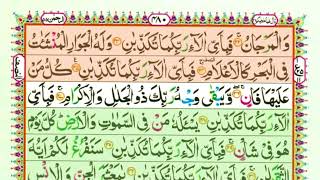 وَالْمَرْجَانُ فَبِأَيِّ اٰلَآءِ رَبِّكُمَا تُكَذِّبٰنِ وَلَهُ الْجَوَارِ الْمُنْشَئٰتُ
فِي الْبَحْرِ كَالْاَعْلَامِ فَبِأَيِّ اٰلَآءِ رَبِّكُمَا تُكَذِّبٰنِ كُلُّ مَنْ
عَلَيْهَا فَانٍ وَّيَبْقٰى وَجْهُ رَبِّكَ ذُو الْجَلٰلِ وَالْاِكْرَامِ فَبِأَيِّ
اٰلَآءِ رَبِّكُمَا تُكَذِّبٰنِ يَسْـَٔلُهٗ مَنْ فِي السَّمٰوٰتِ وَالْاَرْضِ كُلَّ يَوْمٍ
هُوَ فِيْ شَاْنٍ فَبِأَيِّ اٰلَآءِ رَبِّكُمَا تُكَذِّبٰنِ سَنَفْرُغُ لَكُمْ اَيُّهَ